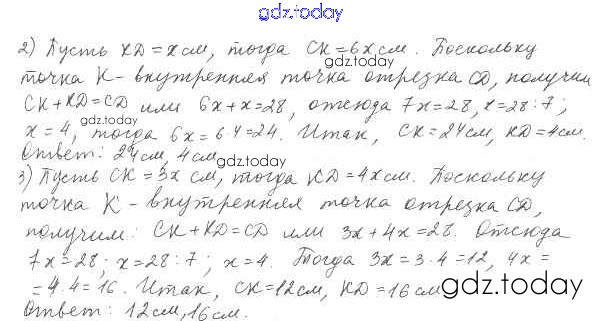 gdz.today
2) Пусть KD = x см, тогда CK = 6x см. Поскольку
gdz.today
точка K - внутренняя точка отрезка CD, получим
CK + KD = CD или 6x + x = 28, отсюда 7x = 28, x = 28 : 7;
x = 4, тогда 6x = 6·4 = 24. Итак, CK = 24 см, KD = 4 см.
Ответ: 24 см, 4 см
gdz.today
3) Пусть CK = 3x см, тогда KD = 4x см. Поскольку
точка K - внутренняя точка отрезка CD,
gdz.today
получим: CK + KD = CD или 3x + 4x = 28. Отсюда
7x = 28; x = 28 : 7; x = 4. Тогда 3x = 3·4 = 12, 4x =
= 4·4 = 16. Итак, CK = 12 см, KD = 16 см
gdz.today
Ответ: 12 см, 16 см.